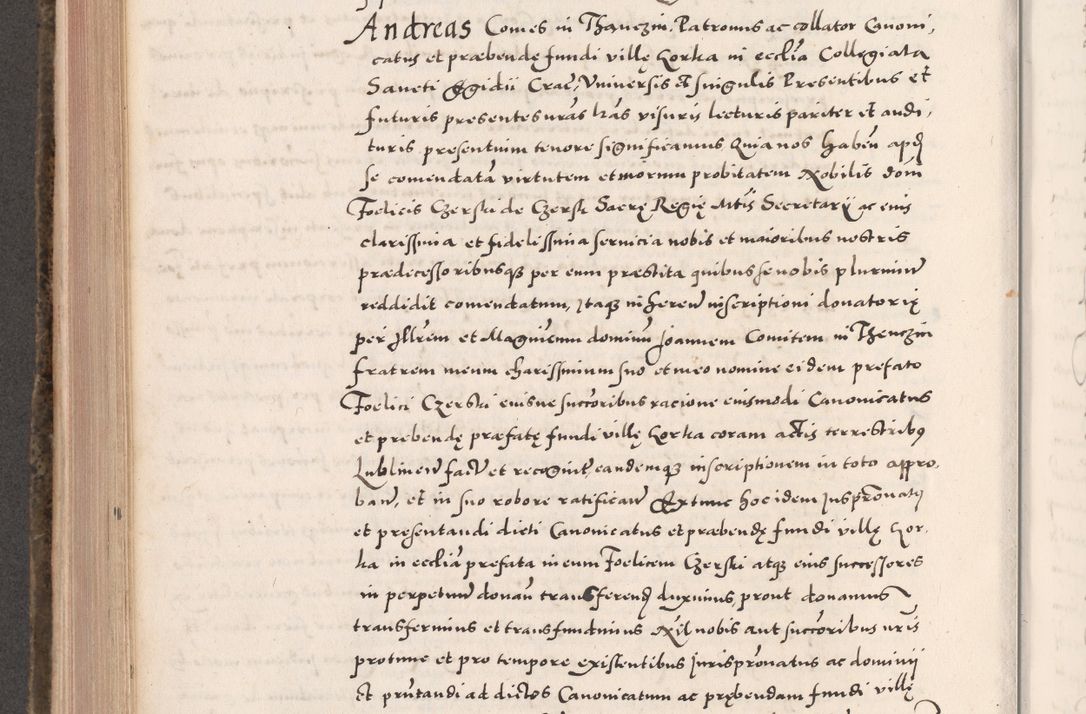 Andreas Comes in Thanczin, Patronus ac collator Canoni,
catus et præbendę fundi villę Gorka in ecclia Collegiata
Sancti Egidii Crac, Universis et singulis Presentibus et
futuris presentes nras lras visuris lecturis pariter et audi,
turis presentium tenore significamus, Quia nos haben apd
se comendata virtutem et morum probitatem Nobilis dom
Foelicis Czerski de Czersk Sacrę Regię Mtis Secretarij ac eius
clarissima et fidelissima servicia nobis et maioribus nostris
prædecessoribusq per eum præstita quibus se nobis plurimum
reddidit comendatum, Itaq inheren inscriptioni donatorię
per Illrem et Magnicum dominum Joannem Comitem in Thenczin
fratrem meum charissimum suo et meo nomine eidem prefato
Foelici Czerski eiusve succoribus racione eiusmodi Canonicatus
et prebendę præfatę fundi villę Gorka coram actis terrestribus
Lublinen fact et recognit, eandemq inscriptionem in toto appro,
ban, et in suo robore ratifican Extunc hoc idem Juspronatq
et presentandi dicti Canonicatus et præbendę fundi villę Gor,
ka in ecclia prefata in eum Foelicem Czerski atq eius successores
in perpetuum donan transferend duximus, prout donamus
transferimus et transfundimus Nil nobis aut succoribus nris
protunc et pro tempore existentibus Jurispronatus ac dominii
et prntandi ad dictos Canonicatum ac prębendam fundi villę